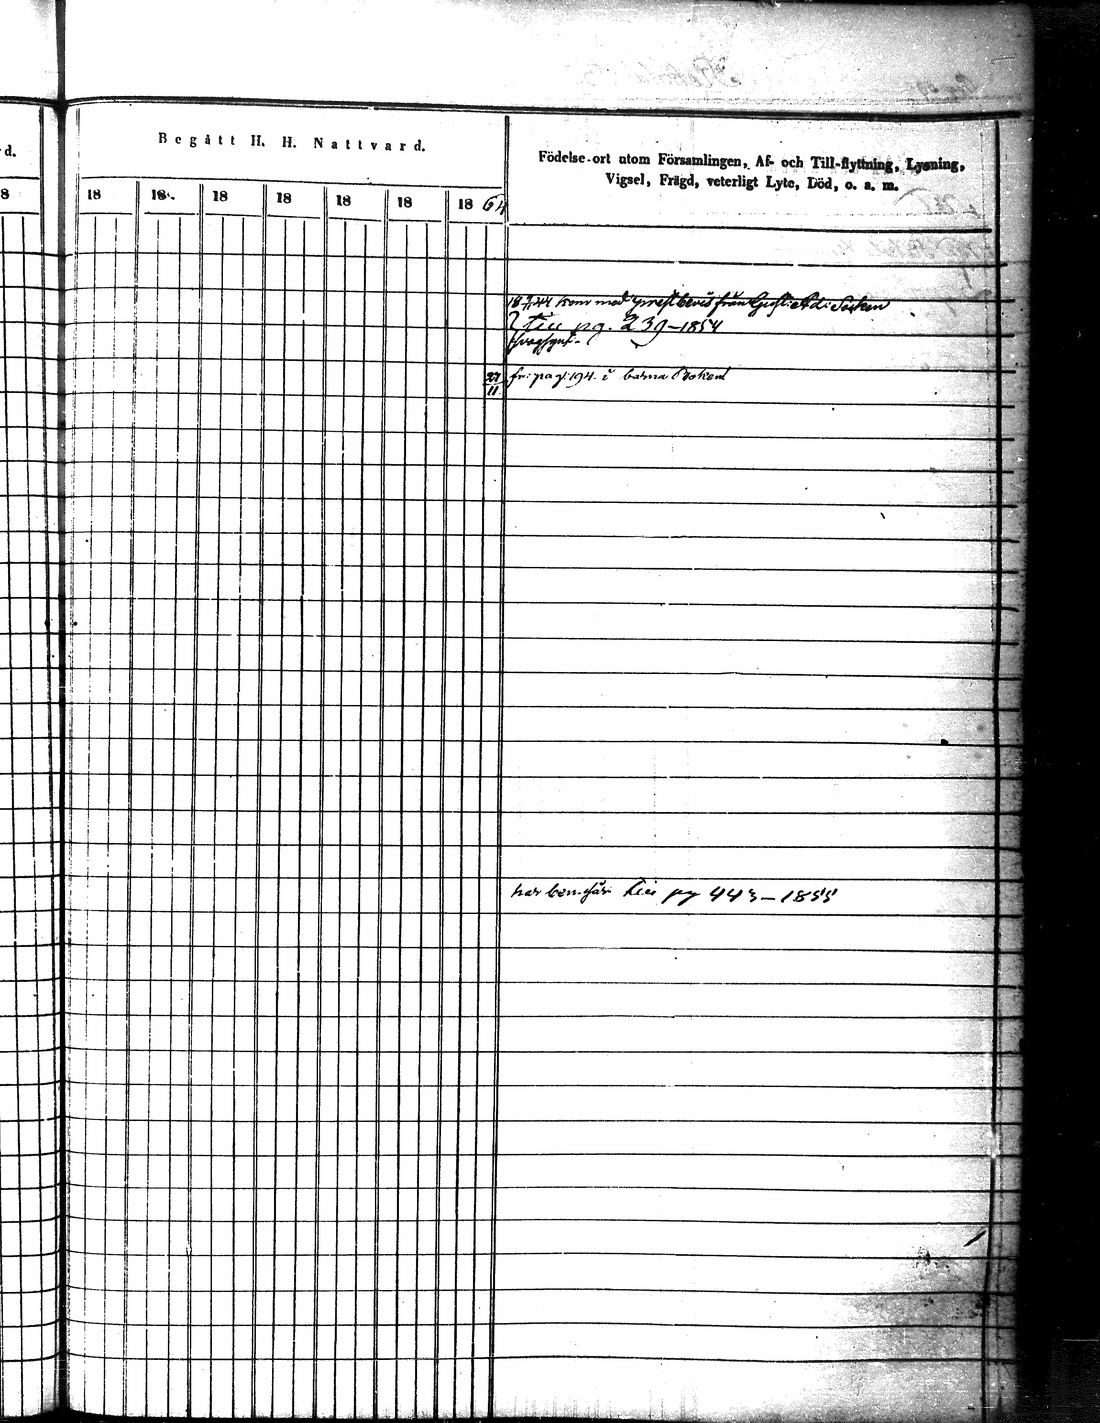 d.
Begått H. H. Nattvard.
Födelse-ort utom Församlingen, Af- och Till-flyttning, Lysning,
Vigsel, Frägd, veterligt Lyte, Död, o. a. m.
8 18 18 18 18 18 18 18 64
44 kom med prestbevis från Gust: Ad: Socken
till pg. 239–1854
27
11 fr: pag: 194. i barna Boken
till pg 443–1855